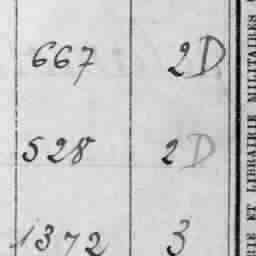 667 2D
528 2D
1372 3
RIE ET LIBRAIRIE MILITAIRES